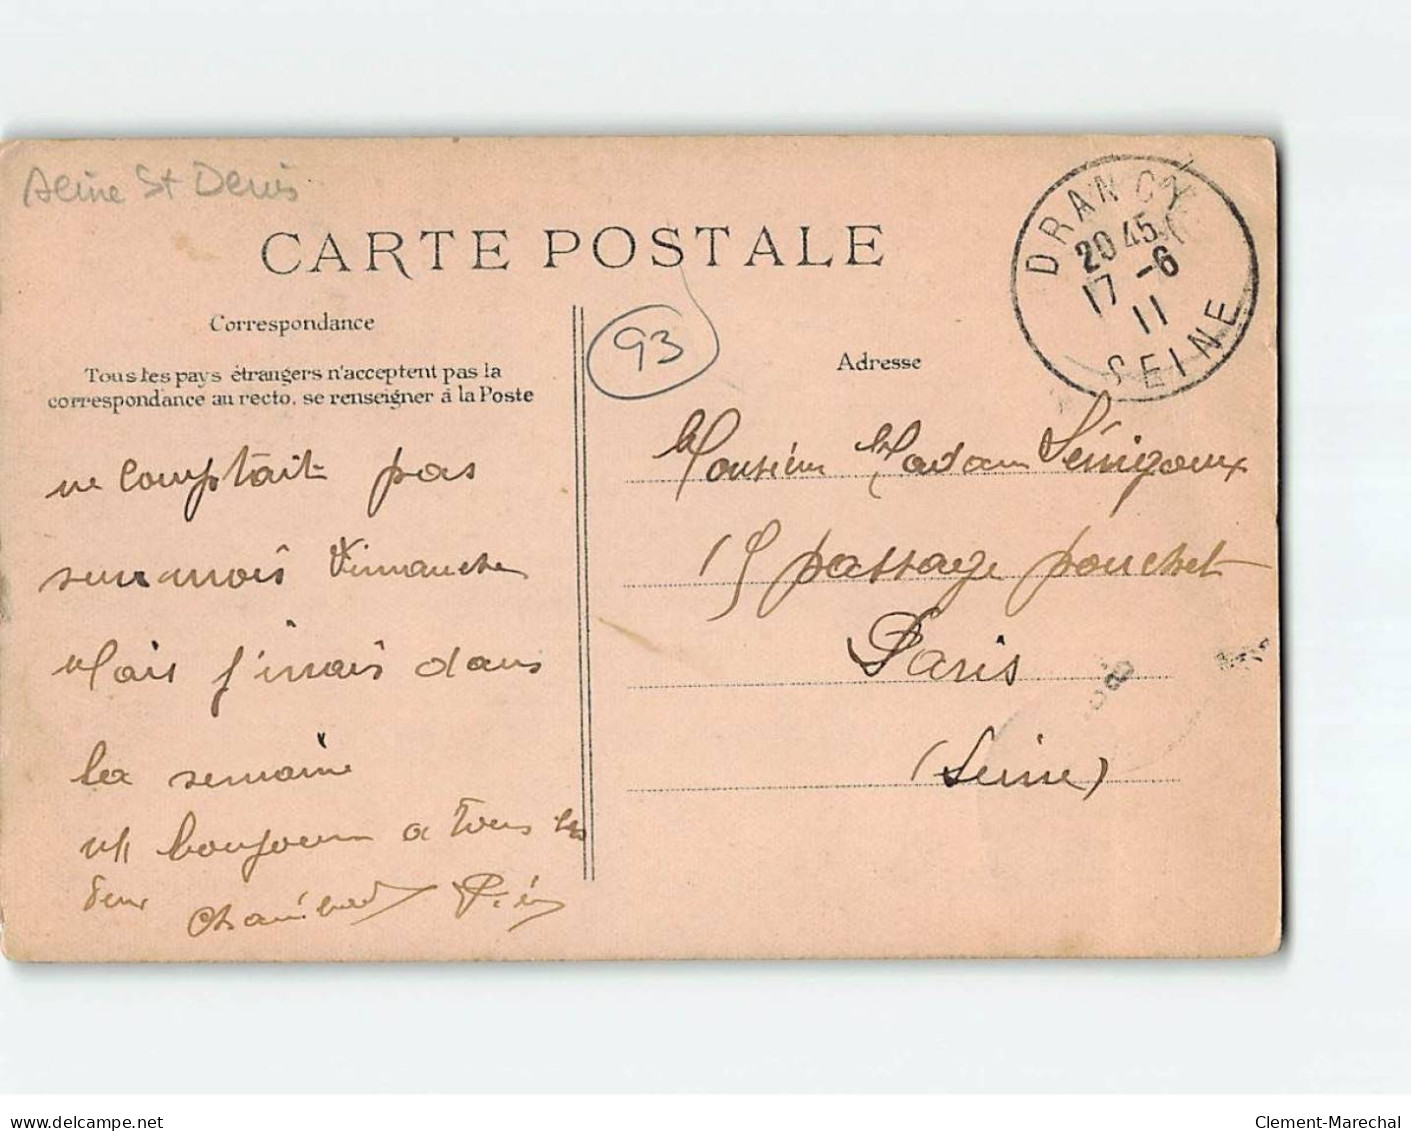 Seine St Denis
CARTE POSTALE
Correspondance
Tous les pays étrangers n'acceptent pas la
correspondance au recto, se renseigner à la Poste
93
Adresse
DRANCY
20 45
17 -6
11
SEINE
ne comptait pas
mais j'irrais dans
la semaine
bonjour a tous les
deux
Monsieur Madam Sérrigoux
15 passage pouchet
Paris
(Seine)
www.delcampe.net
Clement-Marechal